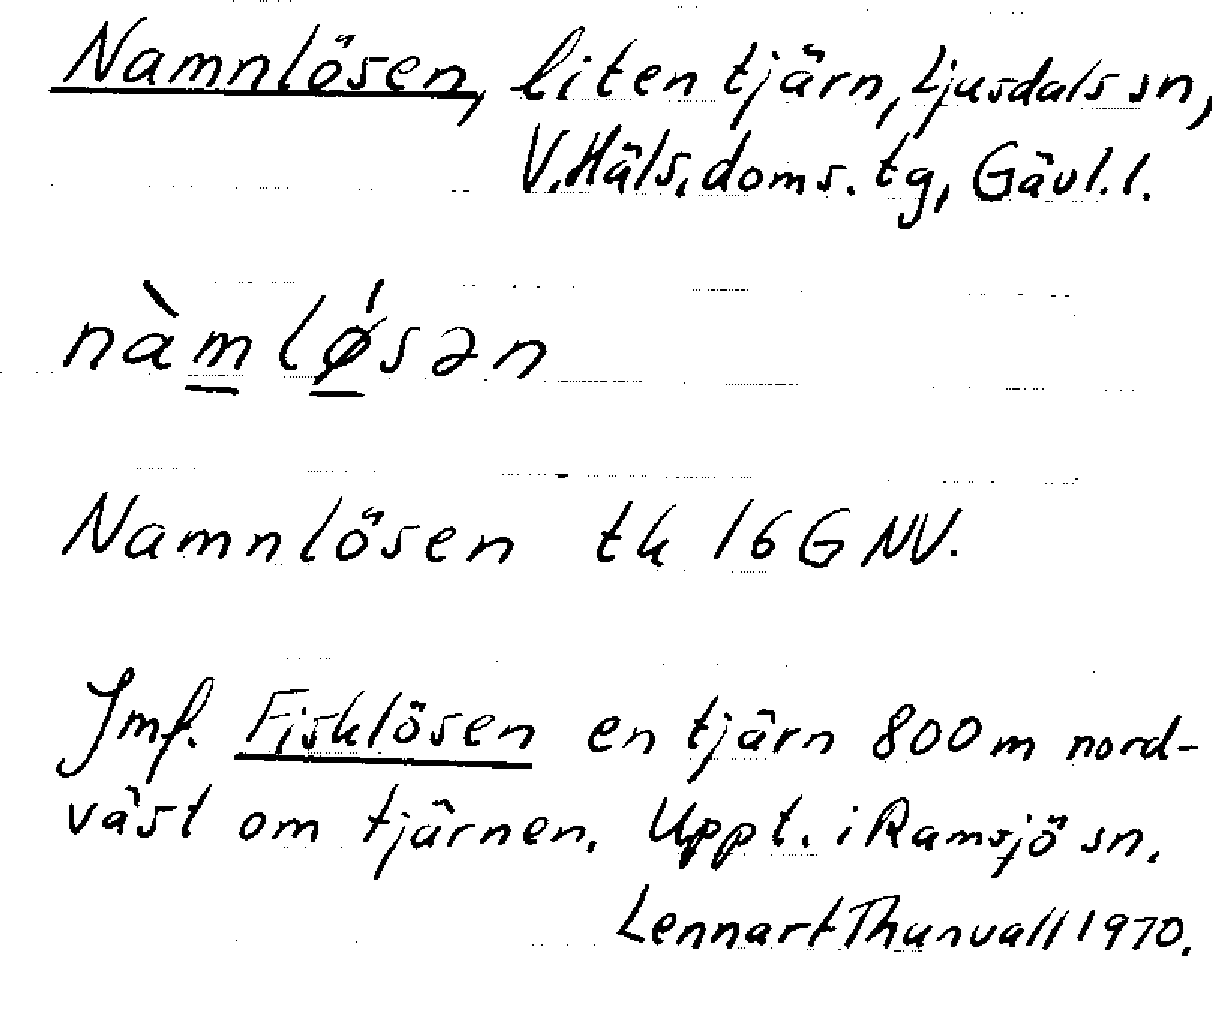 Namnlösen, liten tjärn, Ljusdals sn,
V. Häls. doms. tg, Gävl. l.
nàm̲lǿ̲sən
Namnlösen tk 16 G NV.
Jmf. Fisklösen en tjärn 800 m nord-
väst om tjärnen. Uppt. i Ramsjö sn.
Lennart Thunvall 1970.